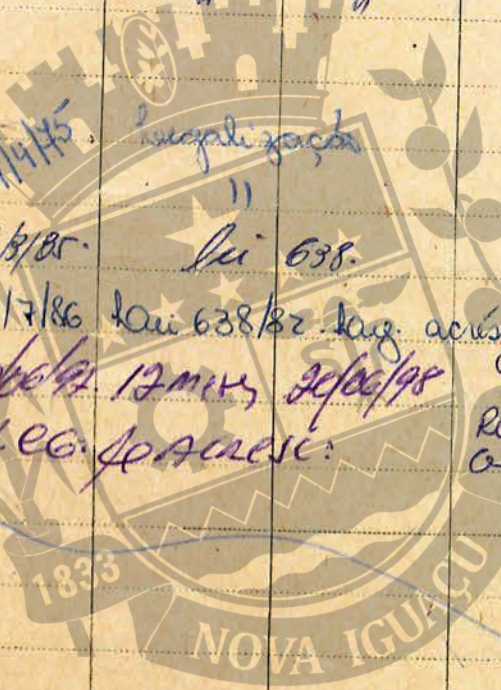 /4/75 Legalização
"
/3/85. Lei 638.
/7/86 Lei 638/82. Leg. acrés
12 meses 20/06/98
LEG. de ACRESC:
1833
NOVA IGUAÇU